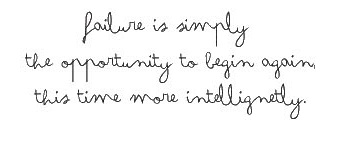 failure is simply
the opportunity to begin again,
this time more intellignetly.